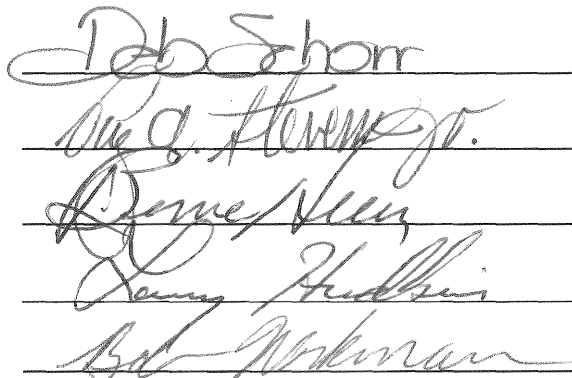 Deb Schorr
Ray A. Stevens Jr.
Bernie Heier
Larry Hudkins
Bob Workman